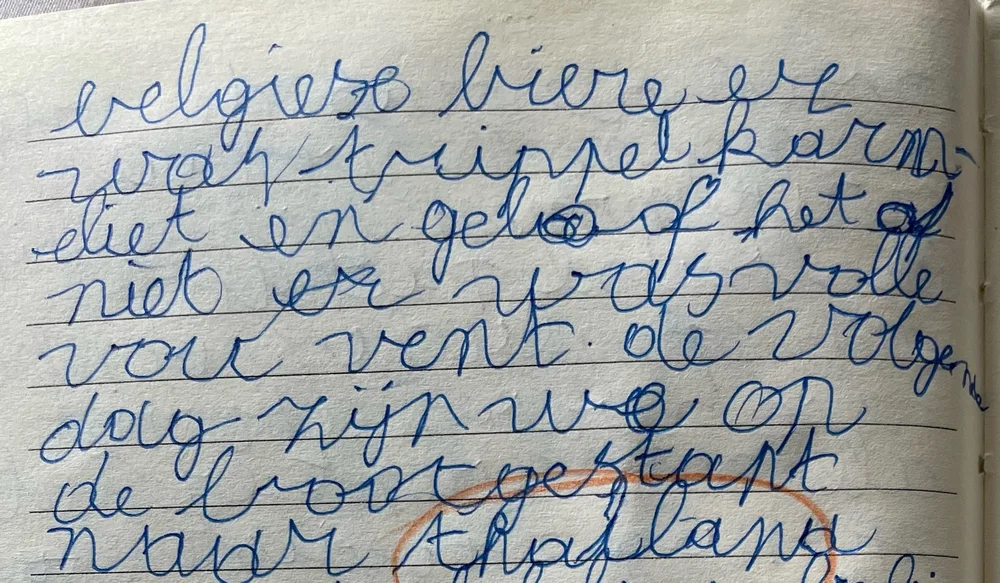 velgiese biere er
was trippel karm-
eliet en gelo of het of
niet er was volle
vour vent. de volgende
dag zijn we op
de boot gestapt
naar thajland